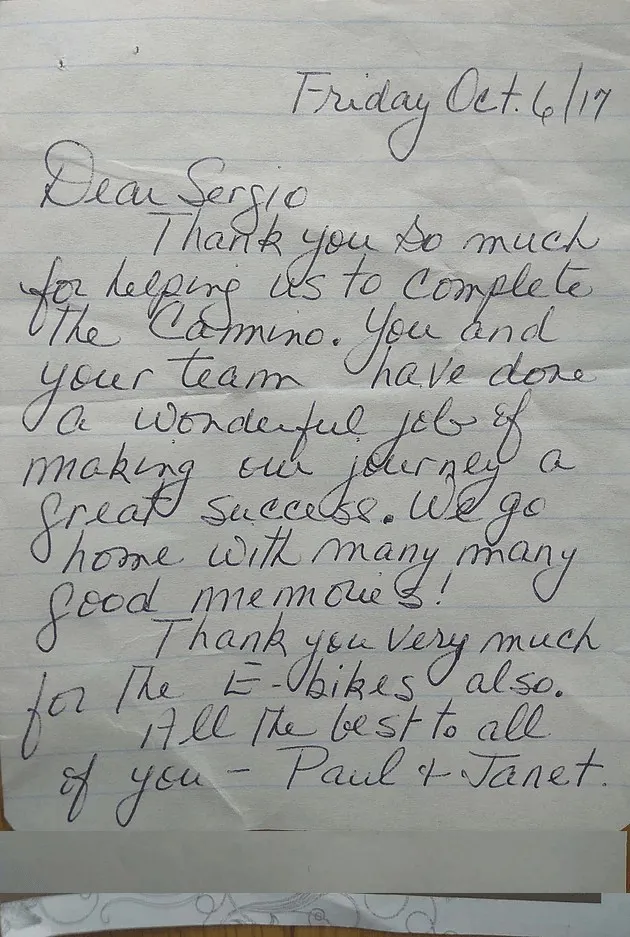 Friday Oct. 6/17
Dear Sergio
Thank you so much
for helping us to complete
The Camino. You and
your team have done
a wonderful job of
making our journey a
great success. We go
home with many many
good memories!
Thank you very much
for The E-bikes also.
All The best to all
of you - Paul & Janet.